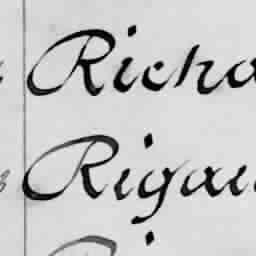 Richa
Rigau